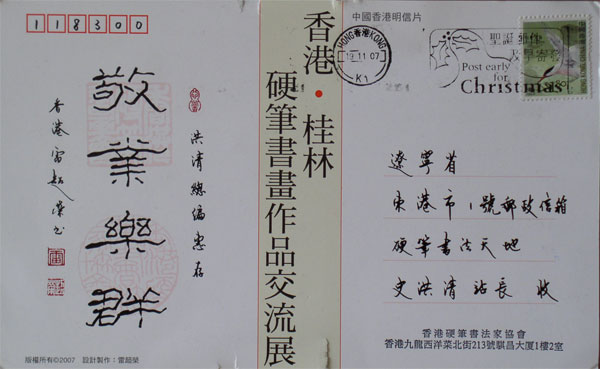 118300
敬業樂群
洪清總編惠存
香港雷超榮書
版權所有©2007 設計製作：雷超榮
香港・桂林
硬筆書畫作品交流展
中國香港明信片
HONG KONG 香港
19 11 07
K1
聖誕郵件
及早寄發
Post early
for
Christmas
遼寧省
東港市1號郵政信箱
硬筆書法天地
史洪清站長 收
香港硬筆書法家協會
香港九龍西洋菜北街213號騏昌大厦1樓2室